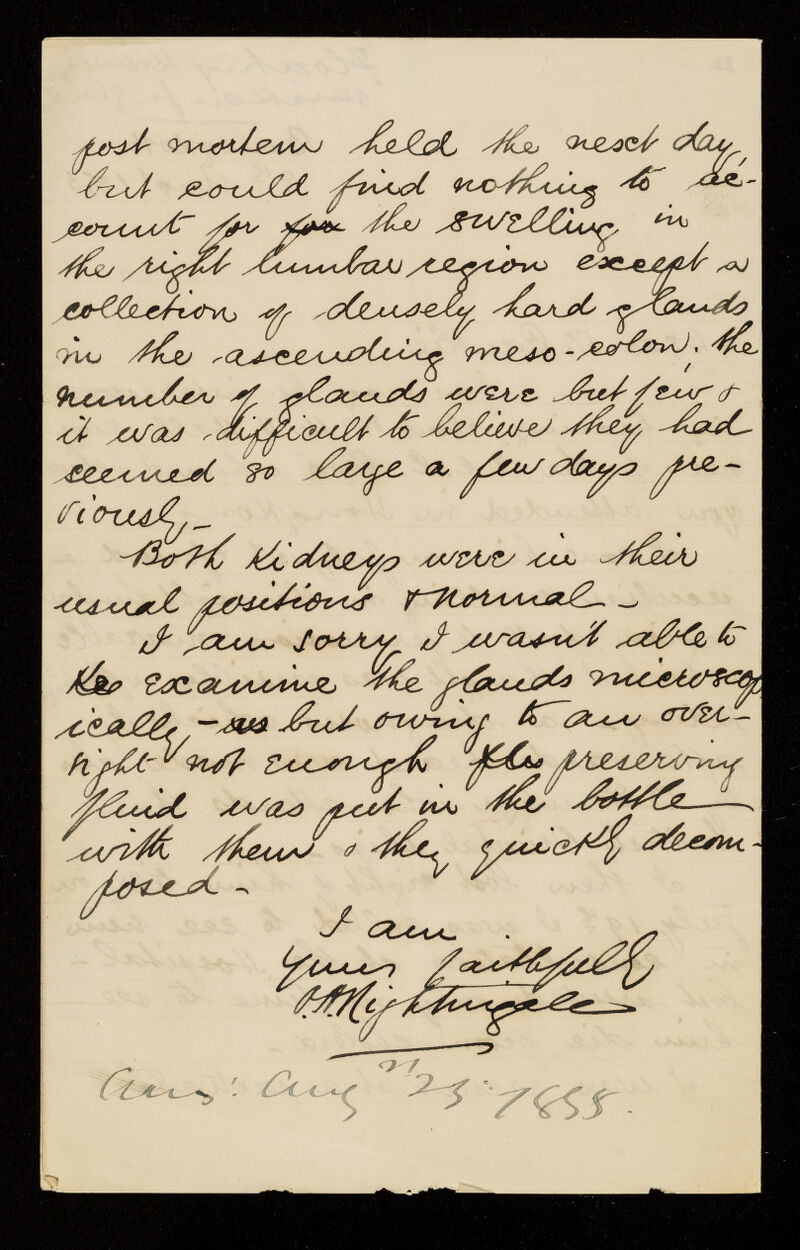 post mortem held the next day,
but could find nothing to ac-
count for for the swelling in
the right lumbar region except a
collection of densely hard glands
in the ascending meso-colon. the
number of glands were but few &
it was difficult to believe they had
seemed so large a few days pre-
viously_
Both Kidneys were in their
usual positions & normal_
I am sorry I wasn't able to
examine the glands microscop
ically, - as but owing to an over-
sight not enough flu preserving
fluid was put in the bottle
with them & they quickly decom-
posed_
I am
Yours faithfully
Nightingale
Ans: Aug 1888.